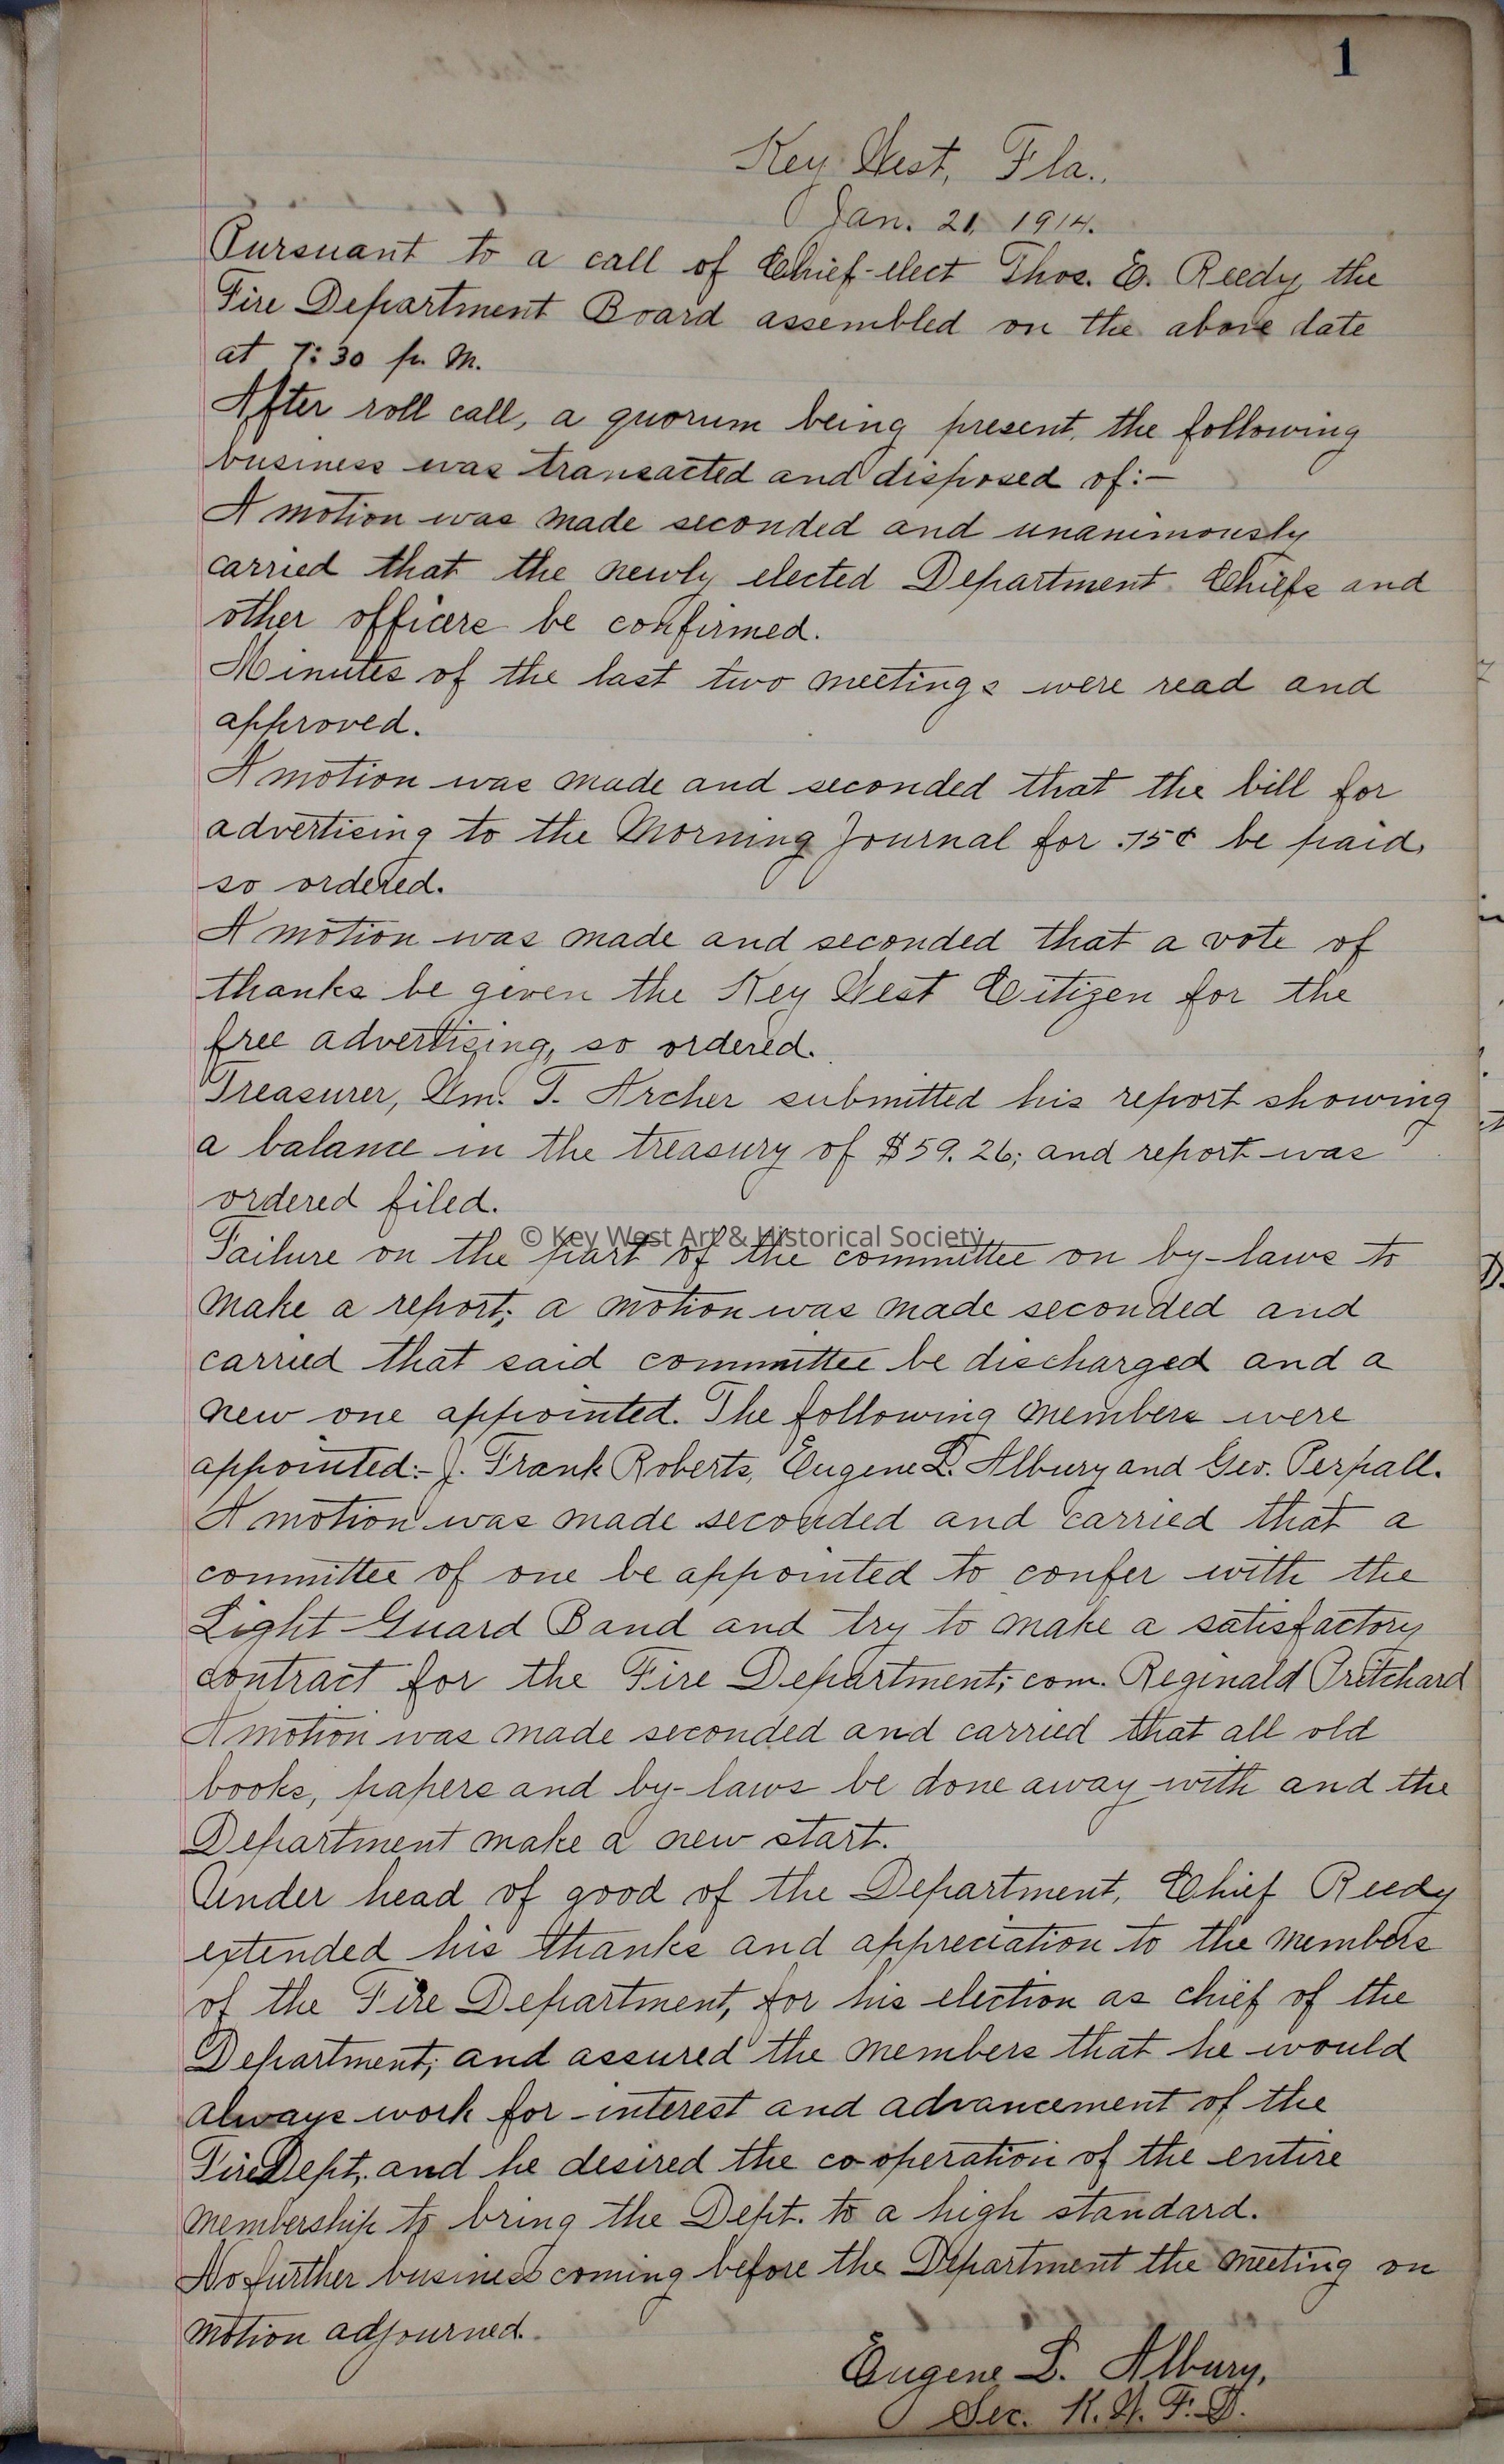 1
Key West, Fla.,
Jan. 21, 1914.
Pursuant to a call of Chief-elect Thos. E. Reedy, the
Fire Department Board assembled on the above date
at 7:30 p. m.
After roll call, a quorum being present, the following
business was transacted and disposed of:-
A motion was made seconded and unanimously
carried that the newly elected Department Chiefs and
other officers be confirmed.
Minutes of the last two meetings were read and
approved.
A motion was made and seconded that the bill for
advertising to the Morning Journal for .75¢ be paid,
so ordered.
A motion was made and seconded that a vote of
thanks be given the Key West Citizen for the
free advertising, so ordered.
Treasurer, Wm. T. Archer submitted his report showing
a balance in the treasury of $59.26; and report was
ordered filed.
© Key West Art & Historical Society
Failure on the part of the committee on by-laws to
make a report; a motion was made seconded and
carried that said committee be discharged and a
new one appointed. The following members were
appointed:- J. Frank Roberts, Eugene L. Albury and Geo. Perpall.
A motion was made seconded and carried that a
committee of one be appointed to confer with the
Light Guard Band and try to make a satisfactory
contract for the Fire Department; com. Reginald Pritchard
A motion was made seconded and carried that all old
books, papers and by-laws be done away with and the
Department make a new start.
Under head of good of the Department, Chief Reedy
extended his thanks and appreciation to the members
of the Fire Department, for his election as chief of the
Department; and assured the members that he would
always work for interest and advancement of the
Fire Dept, and he desired the co-operation of the entire
membership to bring the Dept. to a high standard.
No further business coming before the Department the meeting on
motion adjourned.
Eugene L. Albury,
Sec. K. W. F. D.